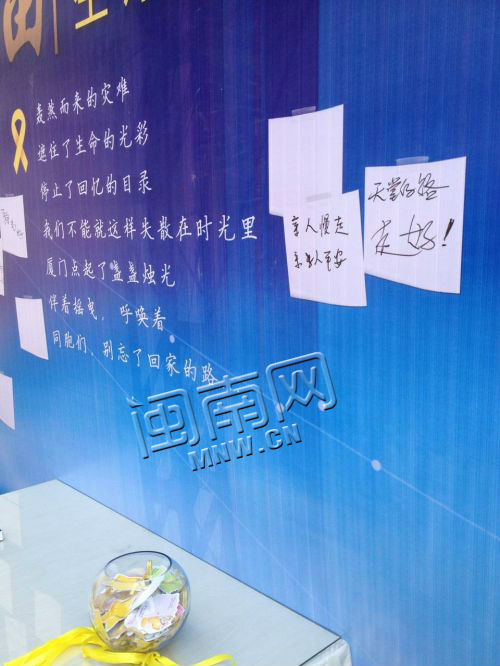 轰然而来的灾难
遮住了生命的光彩
停止了回忆的目录
我们不能就这样失散在时光里
厦门点起了盏盏烛光
伴着摇曳，呼唤着
同胞们，别忘了回家的路
亲人慢走
亲人平安
天堂的路
走好！
闽南网
MNW.CN